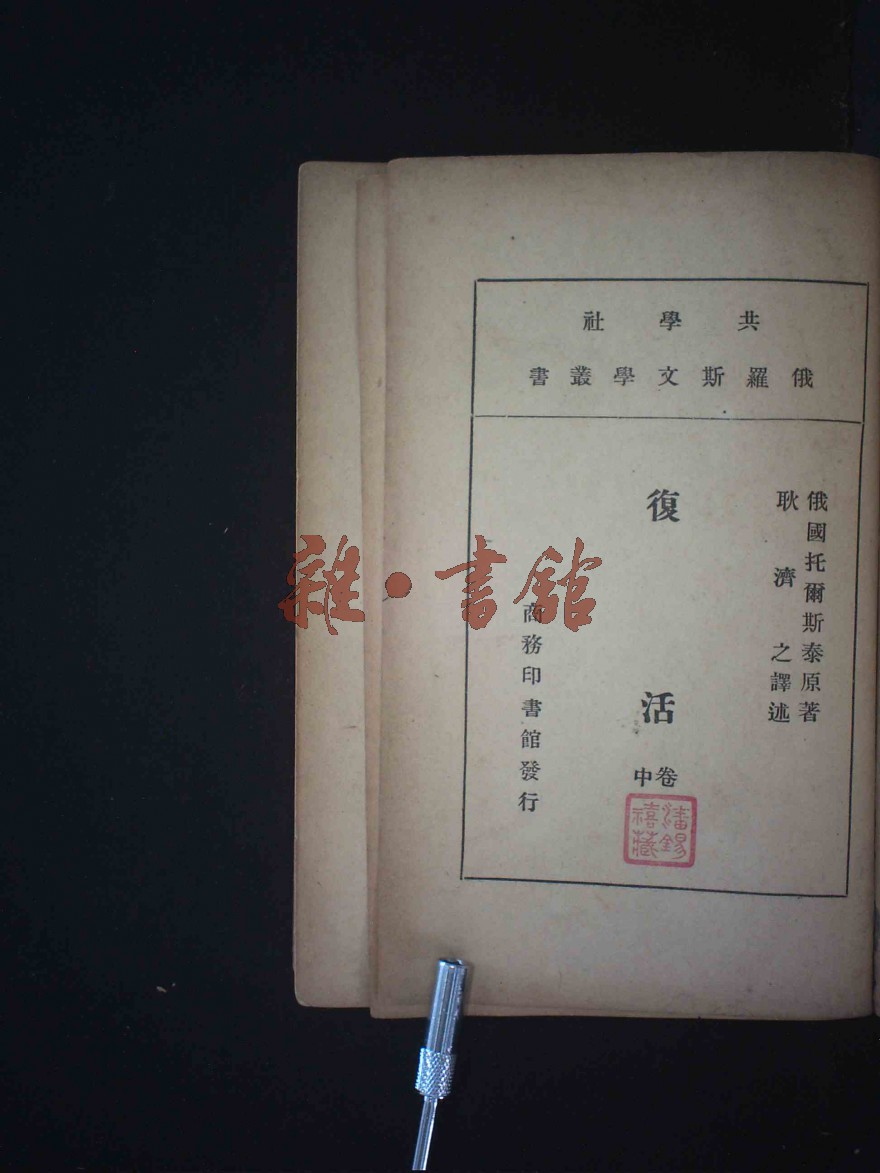 共學社
俄羅斯文學叢書
俄國托爾斯泰原著
耿濟之譯述
復活
卷中
潘錫禧藏
商務印書館發行
雜·書館